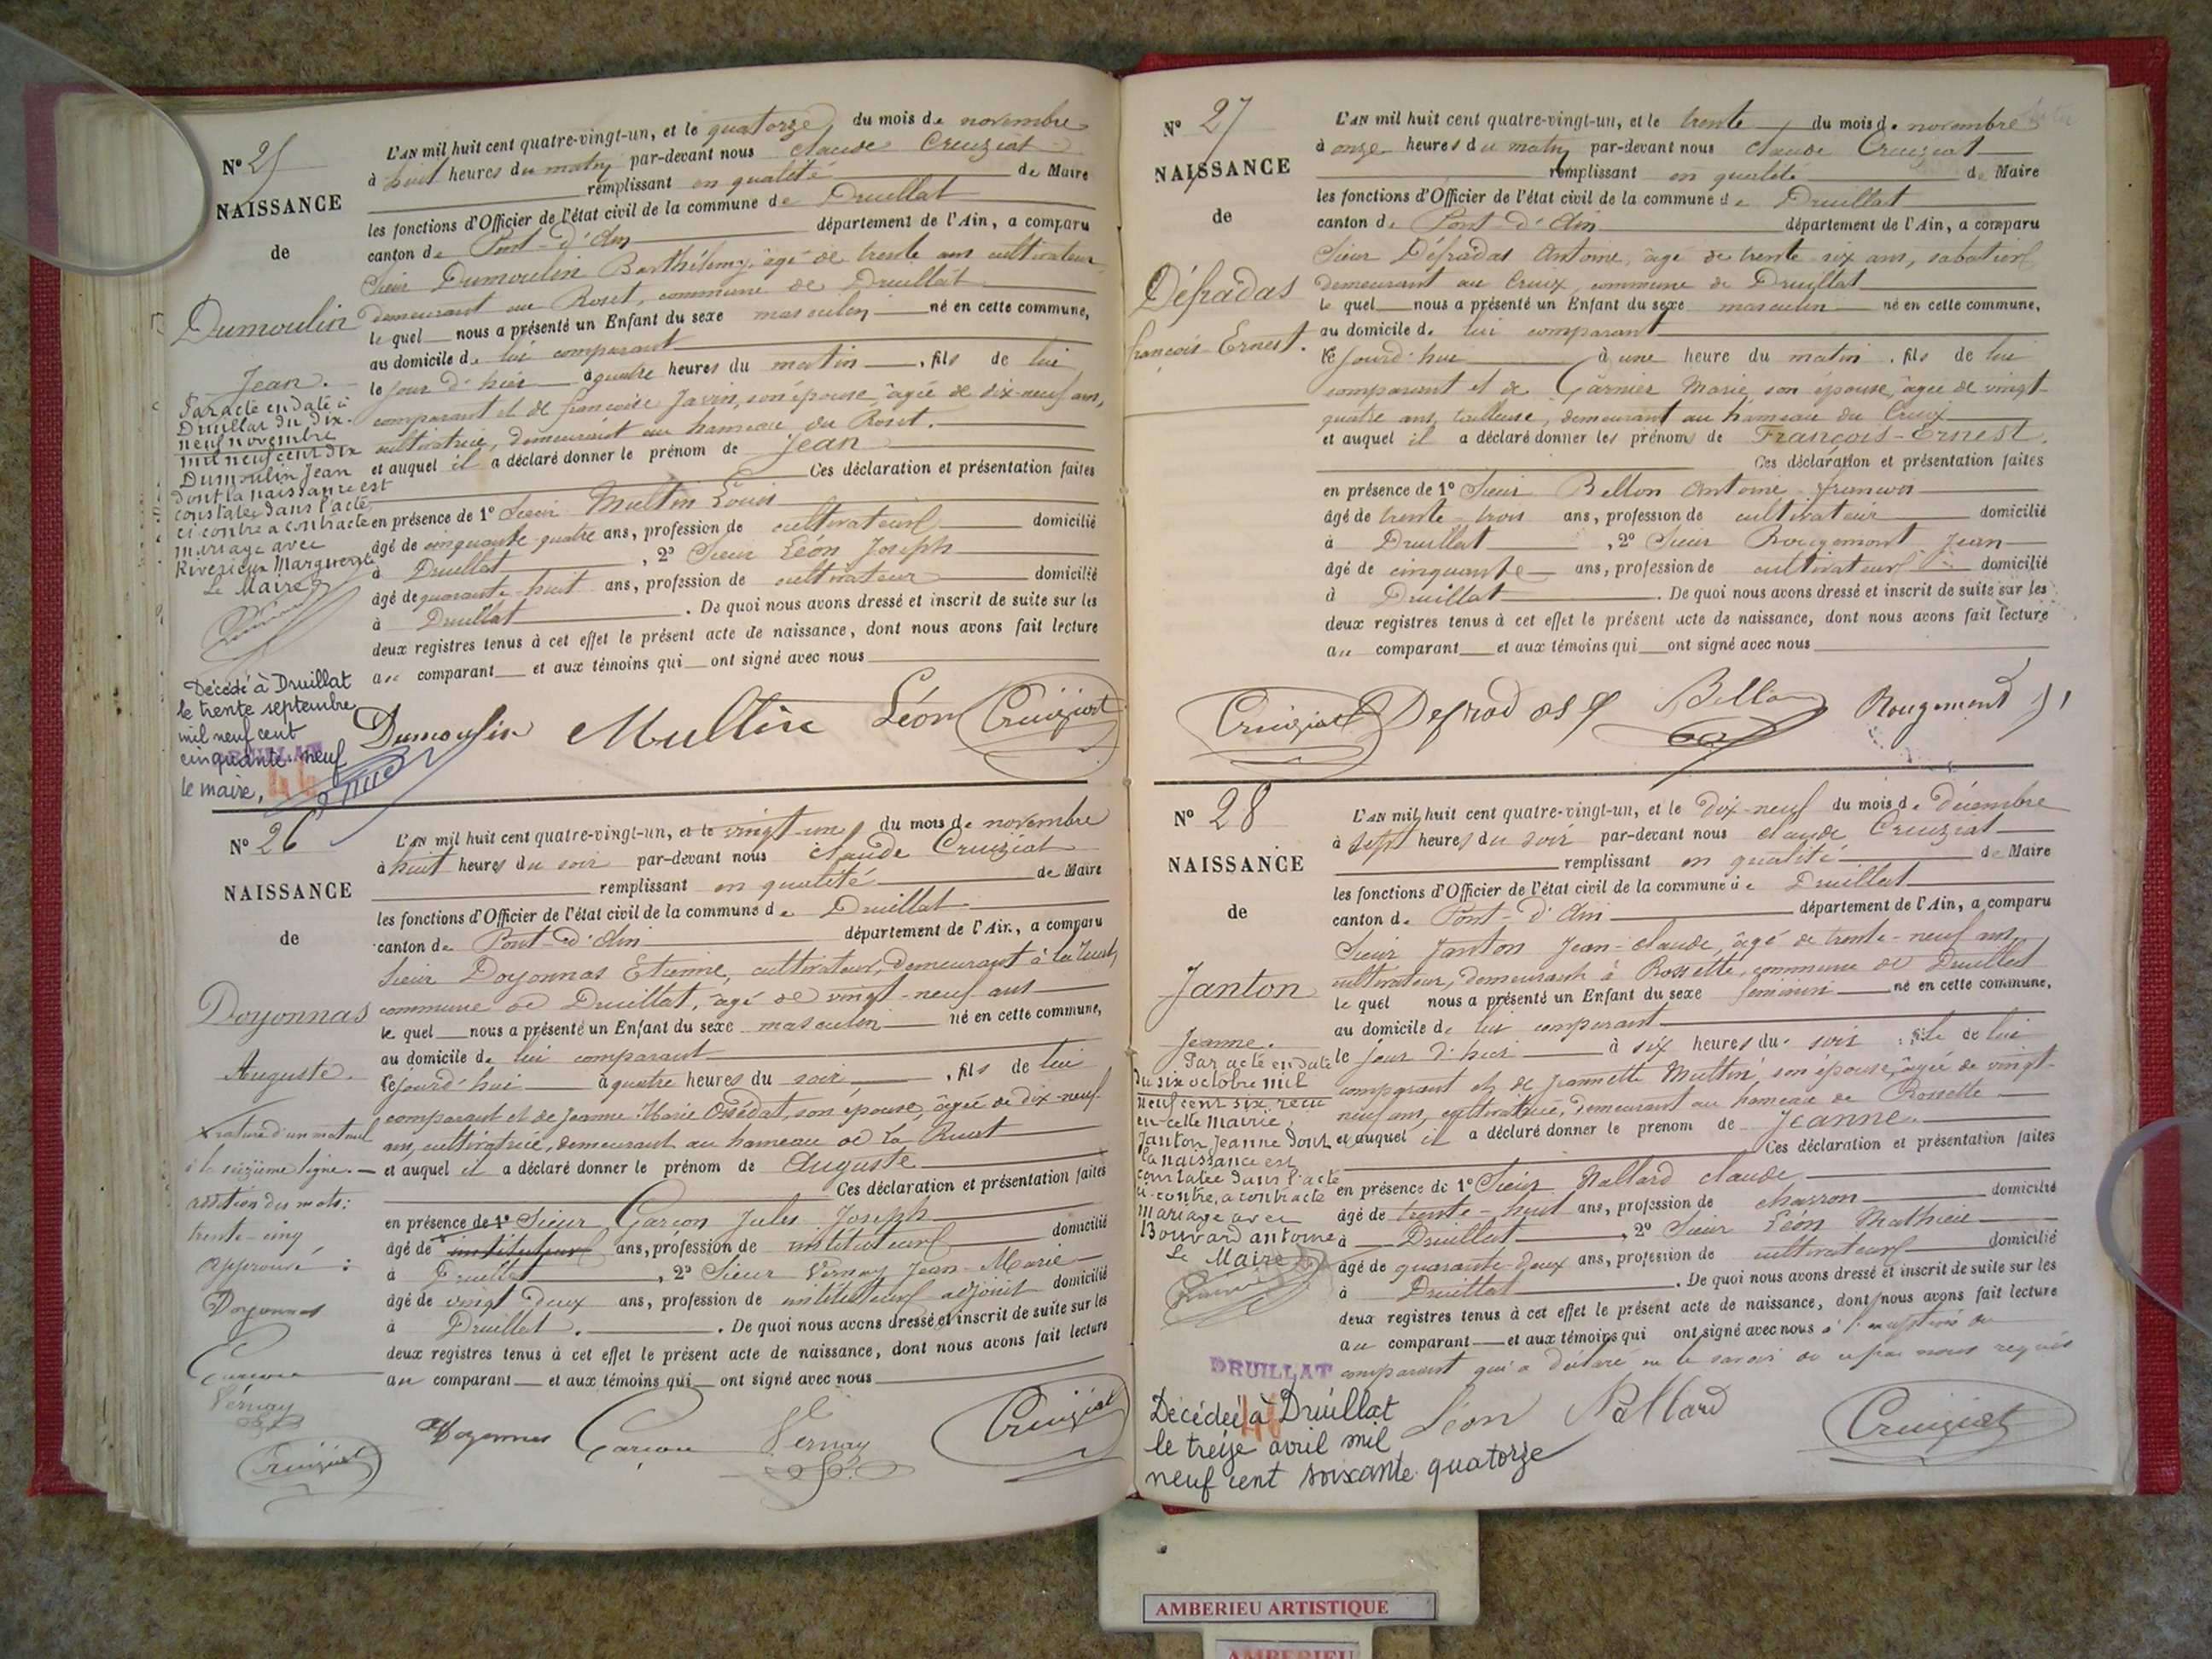 N° 25
NAISSANCE
de
Dumoulin
Jean.
Par acte en date à
Druillat du dix-
neuf novembre
mil neuf cent dix
Dumoulin Jean
dont la naissance est
constatée dans l'acte
ci contre a contracté
mariage avec
Riverieux Marguerite
Le Maire
Décédé à Druillat
le trente septembre
mil neuf cent
cinquante-neuf
le maire,
DRUILLAT
L'AN mil huit cent quatre-vingt-un, et le quatorze du mois de novembre
à huit heures du matin par-devant nous Claude Cruiziat
remplissant en qualité de Maire
les fonctions d'Officier de l'état civil de la commune de Druillat
canton de Pont-d'Ain département de l'Ain, a comparu
Sieur Dumoulin Barthélemy, âgé de trente ans cultivateur
demeurant au Roset, commune de Druillat
le quel nous a présenté un Enfant du sexe masculin né en cette commune,
au domicile de lui comparant
le jour d'hier à quatre heures du matin, fils de lui
comparant et de françoise Javrin, son épouse, âgée de dix-neuf ans,
cultivatrice, demeurant au hameau du Roset.
et auquel il a déclaré donner le prénom de Jean
Ces déclaration et présentation faites
en présence de 1° Sieur Multin Louis
âgé de cinquante-quatre ans, profession de cultivateur domicilié
à Druillat, 2° Sieur Léon Joseph
âgé de quarante-huit ans, profession de cultivateur domicilié
à Druillat. De quoi nous avons dressé et inscrit de suite sur les
deux registres tenus à cet effet le présent acte de naissance, dont nous avons fait lecture
au comparant et aux témoins qui ont signé avec nous
Dumoulin Multin Léon Cruiziat
N° 26
NAISSANCE
de
Doyonnas
Auguste.
rature d'un mot nul
à la seizième ligne.
addition des mots:
trente-cinq
approuvé:
Doyonnas
Garcon
Vernay
Cruiziat
L'AN mil huit cent quatre-vingt-un, et le vingt-un du mois de novembre
à huit heures du soir par-devant nous Claude Cruiziat
remplissant en qualité de Maire
les fonctions d'Officier de l'état civil de la commune de Druillat
canton de Pont-d'Ain département de l'Ain, a comparu
Sieur Doyonnas Etienne, cultivateur, demeurant à la
commune de Druillat, âgé de vingt-neuf ans
le quel nous a présenté un Enfant du sexe masculin né en cette commune,
au domicile de lui comparant
Cejourd'hui à quatre heures du soir, fils de lui
comparant et de Jeanne Marie Ossédat, son épouse, âgée de dix-neuf
ans, cultivatrice, demeurant au hameau de La
et auquel il a déclaré donner le prénom de Auguste
Ces déclaration et présentation faites
en présence de 1° Sieur Garcon Jules Joseph
âgé de instituteur ans, profession de instituteur domicilié
à Druillat, 2° Sieur Vernay Jean-Marie
âgé de vingt deux ans, profession de instituteur adjoint domicilié
à Druillat. De quoi nous avons dressé et inscrit de suite sur les
deux registres tenus à cet effet le présent acte de naissance, dont nous avons fait lecture
au comparant et aux témoins qui ont signé avec nous
Doyonnas Garcon Vernay Cruiziat
N° 27
NAISSANCE
de
Défradas
françois-Ernest.
L'AN mil huit cent quatre-vingt-un, et le trente du mois de novembre
à onze heures du matin par-devant nous Claude Cruiziat
remplissant en qualité de Maire
les fonctions d'Officier de l'état civil de la commune de Druillat
canton de Pont-d'Ain département de l'Ain, a comparu
Sieur Défradas Antoine, âgé de trente-six ans, sabotier
demeurant au Creux, commune de Druillat
le quel nous a présenté un Enfant du sexe masculin né en cette commune,
au domicile de lui comparant
Ce jourd'hui à une heure du matin, fils de lui
comparant et de Garnier Marie, son épouse, âgée de vingt-
quatre ans, tailleuse, demeurant au hameau du Creux
et auquel il a déclaré donner les prénoms de François-Ernest.
Ces déclaration et présentation faites
en présence de 1° Sieur Bellon Antoine françois
âgé de trente-trois ans, profession de cultivateur domicilié
à Druillat, 2° Sieur Rougemont Jean
âgé de cinquante ans, profession de cultivateur domicilié
à Druillat. De quoi nous avons dressé et inscrit de suite sur les
deux registres tenus à cet effet le présent acte de naissance, dont nous avons fait lecture
au comparant et aux témoins qui ont signé avec nous
Cruiziat Defradas Bellon Rougemont
N° 28
NAISSANCE
de
Janton
Jeanne.
Par acte en date
du six octobre mil
neuf cent six reçu
en cette mairie,
Janton Jeanne dont
la naissance est
constatée dans l'acte
ci-contre, a contracté
mariage avec
Bouvard antoine
Le Maire
DRUILLAT
Décédée à Druillat
le treize avril mil
neuf cent soixante quatorze
L'AN mil huit cent quatre-vingt-un, et le dix-neuf du mois de décembre
à sept heures du soir par-devant nous Claude Cruiziat
remplissant en qualité de Maire
les fonctions d'Officier de l'état civil de la commune de Druillat
canton de Pont-d'Ain département de l'Ain, a comparu
Sieur Janton Jean-Claude, âgé de trente-neuf ans,
cultivateur, demeurant à Rossette, commune de Druillat
le quel nous a présenté un Enfant du sexe féminin né en cette commune,
au domicile de lui comparant
le jour d'hier à six heures du soir, fille de lui
comparant et de Jeannette Multin, son épouse, âgée de vingt-
neuf ans, cultivatrice, demeurant au hameau de Rossette
et auquel il a déclaré donner le prénom de Jeanne.
Ces déclaration et présentation faites
en présence de 1° Sieur Nallard Claude
âgé de trente-huit ans, profession de charron domicilié
à Druillat, 2° Sieur Léon Mathieu
âgé de quarante-deux ans, profession de cultivateur domicilié
à Druillat. De quoi nous avons dressé et inscrit de suite sur les
deux registres tenus à cet effet le présent acte de naissance, dont nous avons fait lecture
au comparant et aux témoins qui ont signé avec nous à l'exception du
comparant qui a déclaré ne le savoir de ce par nous requis
Léon Nallard Cruiziat
AMBERIEU ARTISTIQUE
AMBERIEU